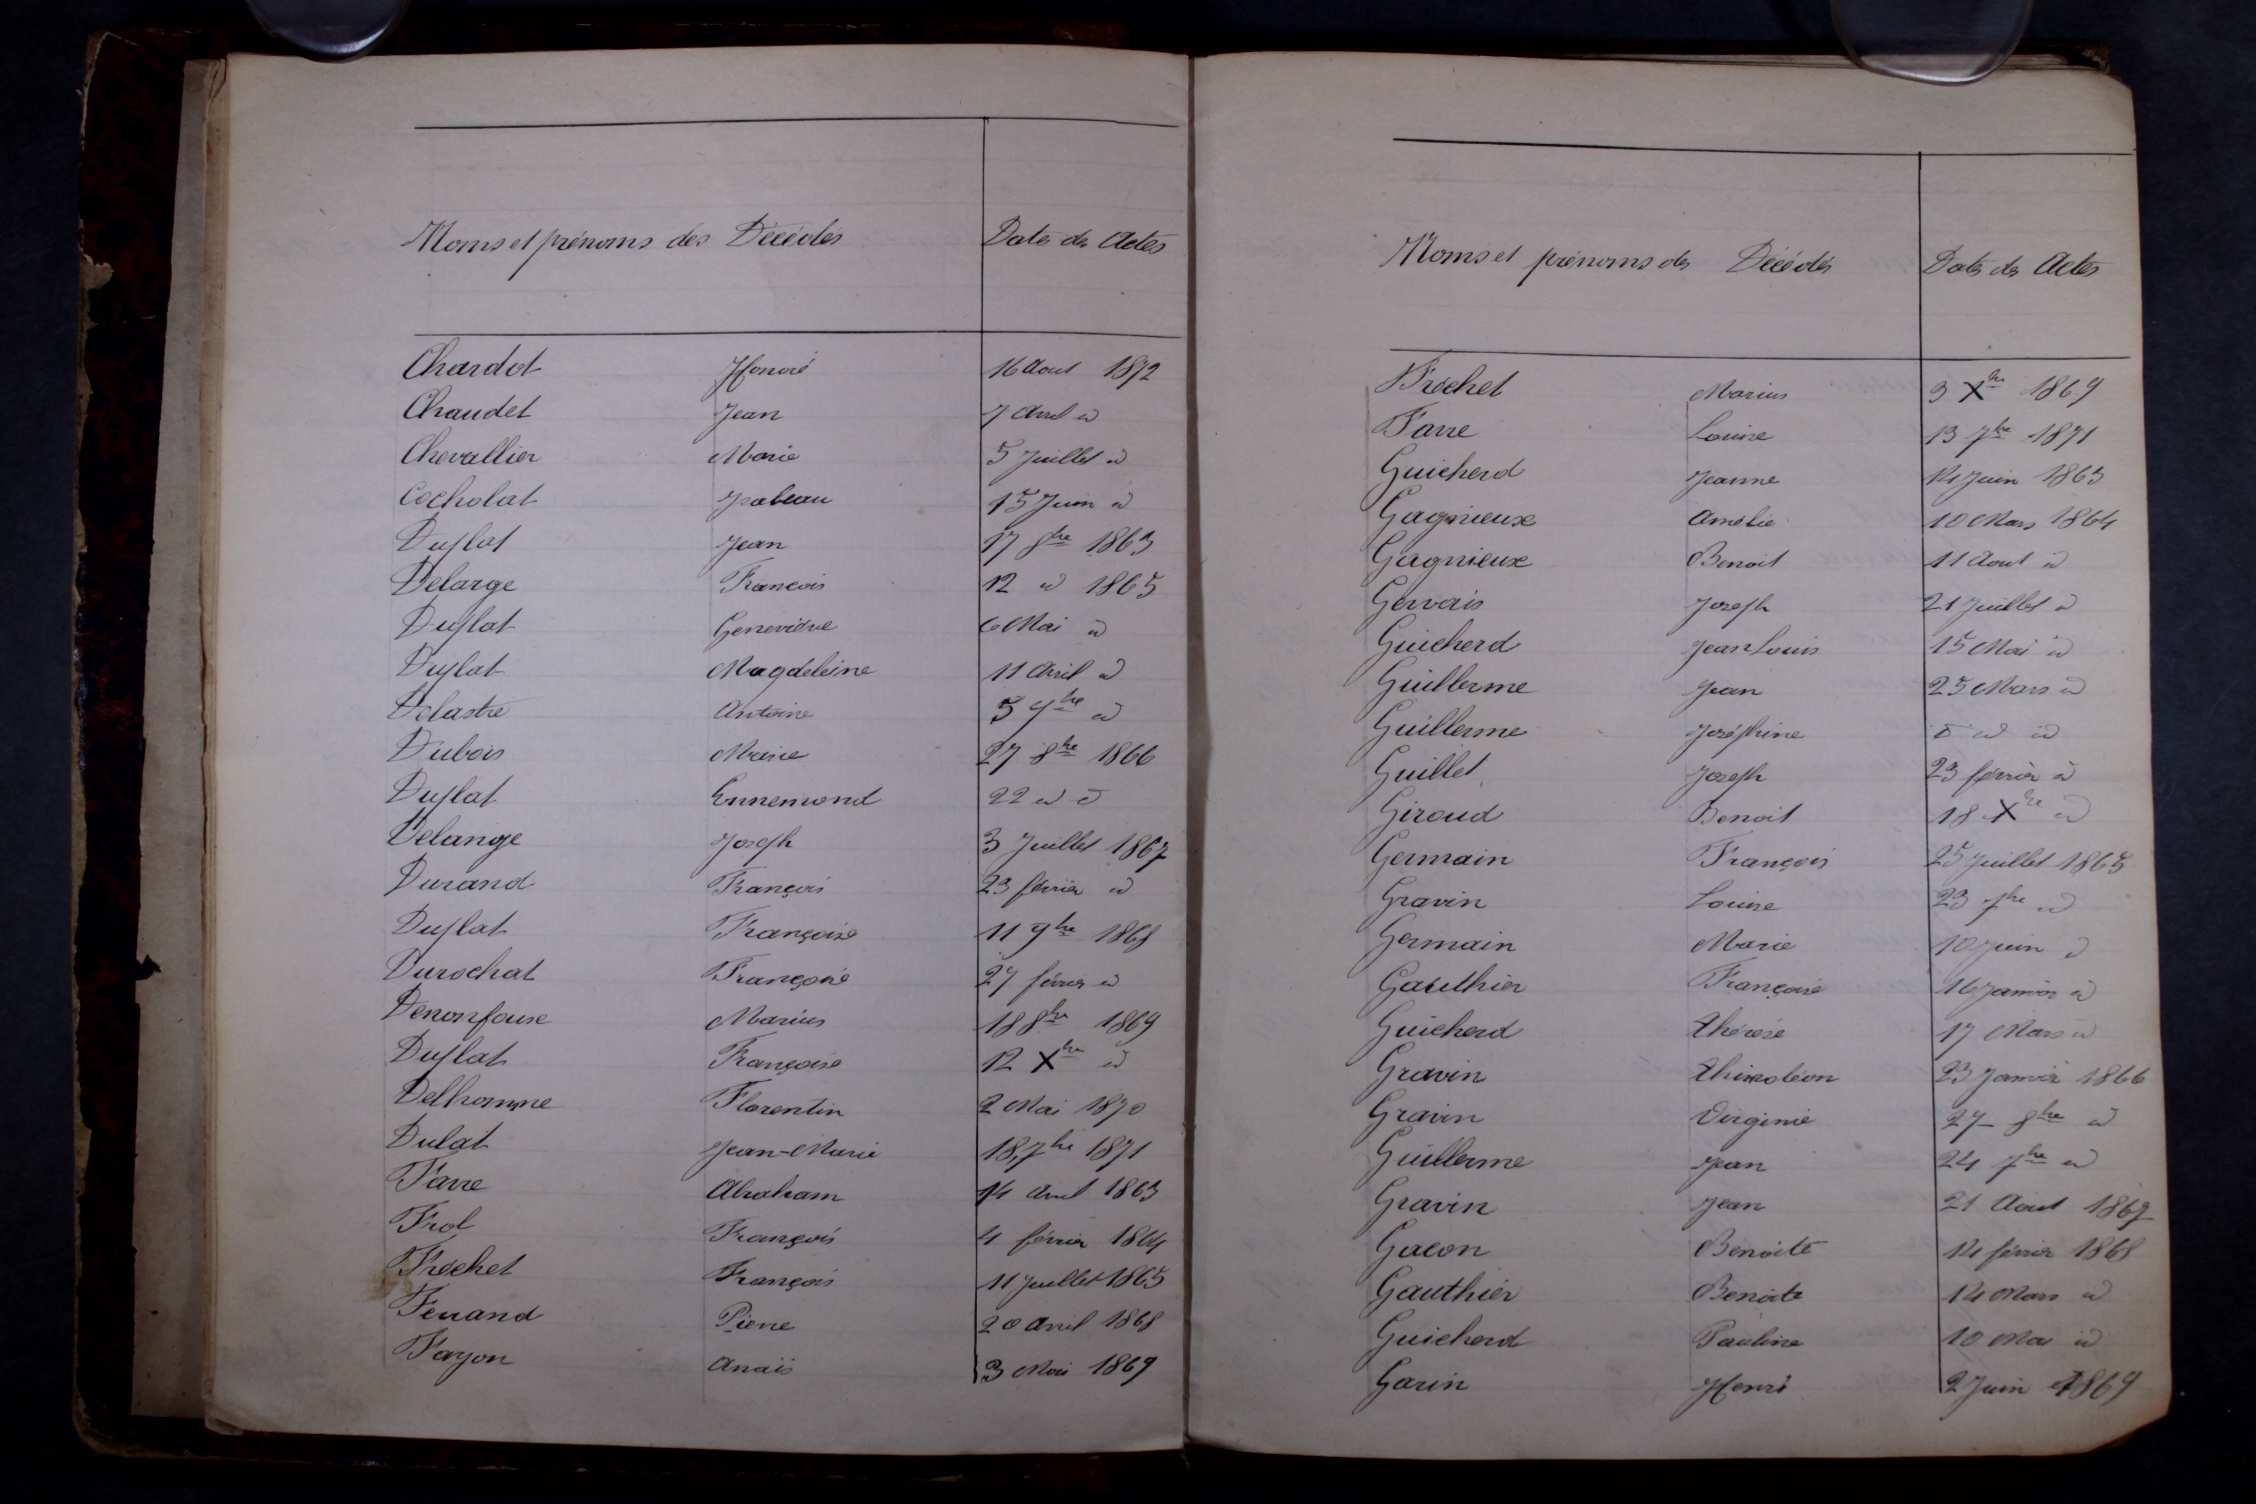 Noms et prénoms des Décédés Dates des Actes
Chardot Honoré 16 Aout 1872
Chaudet Jean 7 Avril id
Chevallier Marie 5 Juillet id
Cocholat Isabeau 15 Juin id
Duplat Jean 17 8bre 1863
Delarge Francois 12 id 1865
Duplat Geneviève 6 Mai id
Duplat Magdeleine 11 Avril id
Delastre Antoine 5 9bre id
Dubois Marie 27 8bre 1866
Duplat Ennemond 22 id id
Delange Joseph 3 Juillet 1867
Durand François 23 février id
Duplat Françoise 11 9bre 1868
Durochat Françoise 27 février id
Denonfouse Marius 18 8bre 1869
Duplat Françoise 12 Xbre id
Delhomme Florentin 2 Mai 1870
Dulat Jean-Marie 18 7bre 1871
Favre Abraham 14 Avril 1863
Frol François 4 février 1864
Fréchet François 11 Juillet 1865
Ferrand Pierre 20 Avril 1868
Fayon Anaïs 3 Mai 1869
Noms et prénoms des Décédés Dates des Actes
Fréchet Marius 3 Xbre 1869
Favre Louise 13 7bre 1871
Guicherd Jeanne 14 Juin 1863
Gagnieux Amélie 10 Mars 1864
Gagnieux Benoit 11 Aout id
Gervais Joseph 21 Juillet id
Guicherd Jean Louis 15 Mai id
Guillerme Jean 25 Mars id
Guillerme Joséphine id id
Guillet Joseph 23 février id
Giroud Benoit 18 Xbre id
Germain François 25 Juillet 1865
Gravin Louise 23 7bre id
Germain Marie 10 Juin id
Gaulthier Françoise 16 Janvier id
Guicherd Thérèse 17 Mars id
Gravin Thimoléon 23 Janvier 1866
Gravin Virginie 27 8bre id
Guillerme Jean 24 7bre id
Gravin Jean 21 Aout 1867
Gacon Benoite 14 février 1868
Gauthier Benoite 14 Mars id
Guicherd Pauline 10 Mai id
Garin Henri 2 Juin 1869